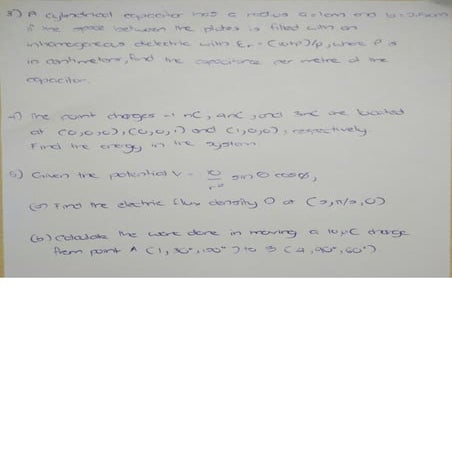 3) A cylindrical capacitor has a radius a=1cm and b=2.5cm
if the space between the plates is filled with an
inhomogeneous dielectric with Er = (10+ρ)/ρ, where ρ is
in centimeters, find the capacitance per metre of the
capacitor.
4) The point charges -1 nC, 4nC, and 3nC are located
at (0,0,0), (0,0,1) and (1,0,0), respectively.
Find the energy in the system
5) Given the potential V = 10/r² sin θ cos φ,
(a) Find the electric flux density D at (2, π/2, 0)
(b) Calculate the work done in moving a 10μC charge
from point A (1, 30°, 120°) to B (4, 90°, 60°).